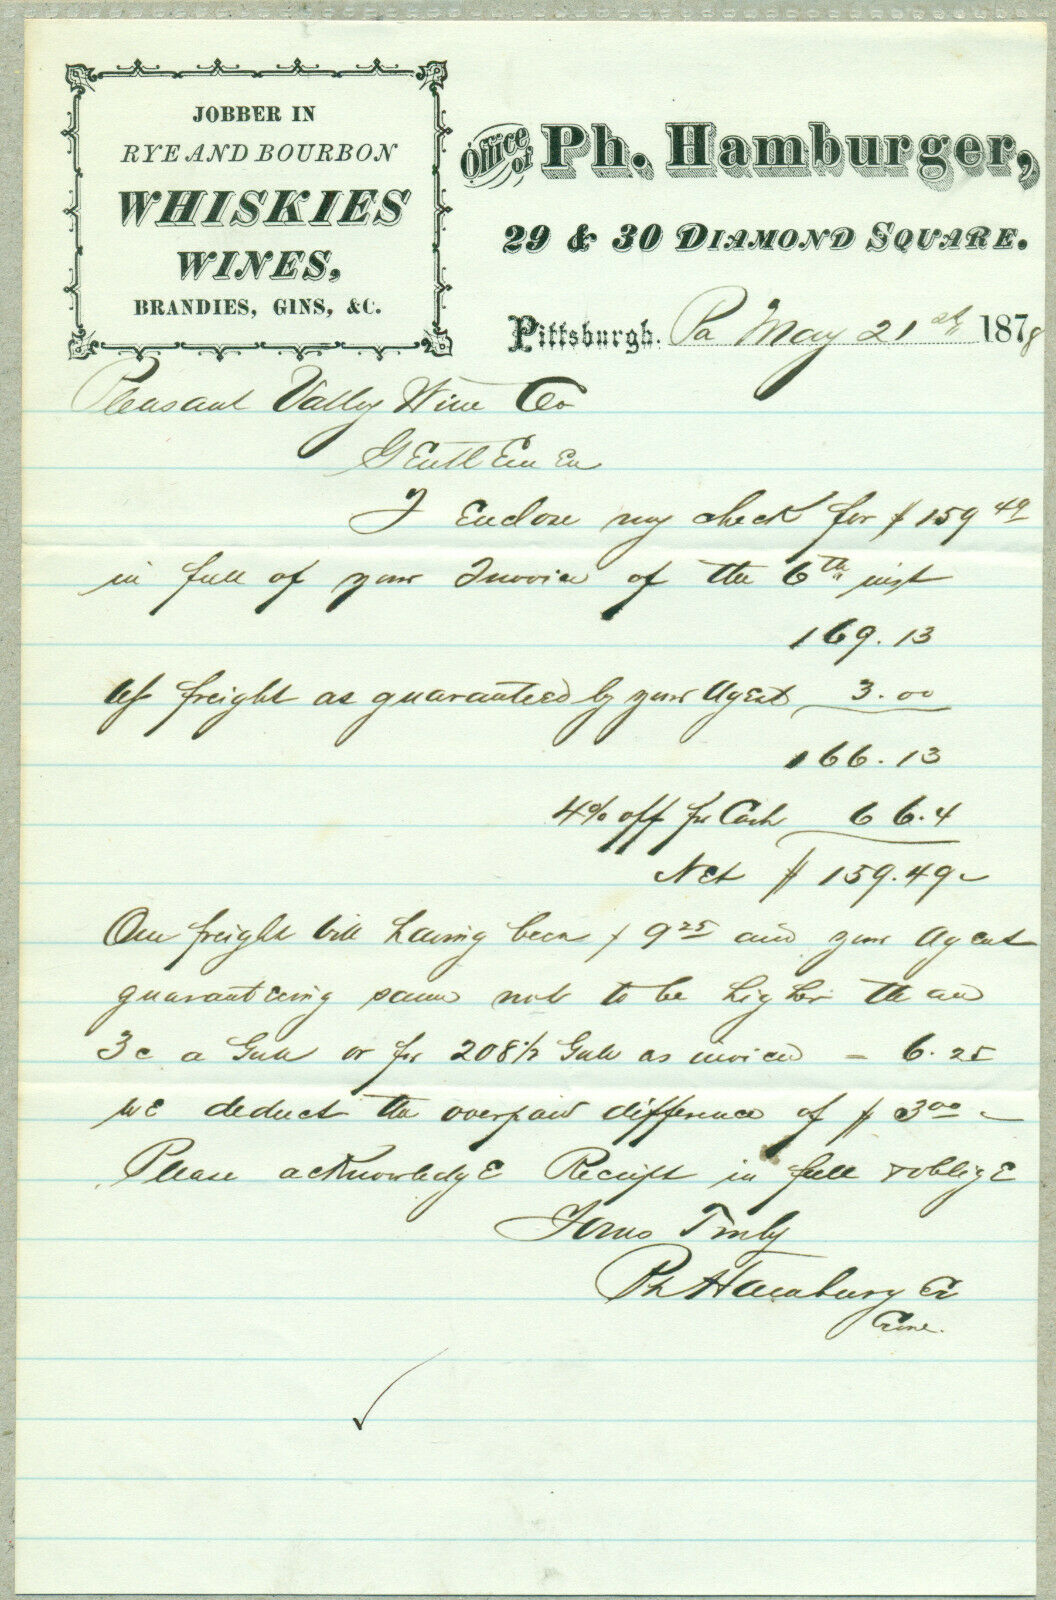 JOBBER IN
RYE AND BOURBON
WHISKIES
WINES,
BRANDIES, GINS, &C.
Office of Ph. Hamburger,
29 & 30 DIAMOND SQUARE.
Pittsburgh. Pa May 21st 1878
Pleasant Valley Wine Co
Gentlemen
I Enclose my check for $159 49
in full of your Invoice of the 6th inst
169.13
freight as guaranteed by your Agent 3.00
166.13
4% off for Cash 6 6.4
Net $159.49
Our freight bill having been $9 25 and your Agent
guaranteeing same not to be higher than
3c a Gall or for 208 1/2 Galls as invoiced = 6.25
we deduct the overpaid difference of $3 00
Please acknowledge Receipt in full & oblige
Yours Truly
Ph Hamburger